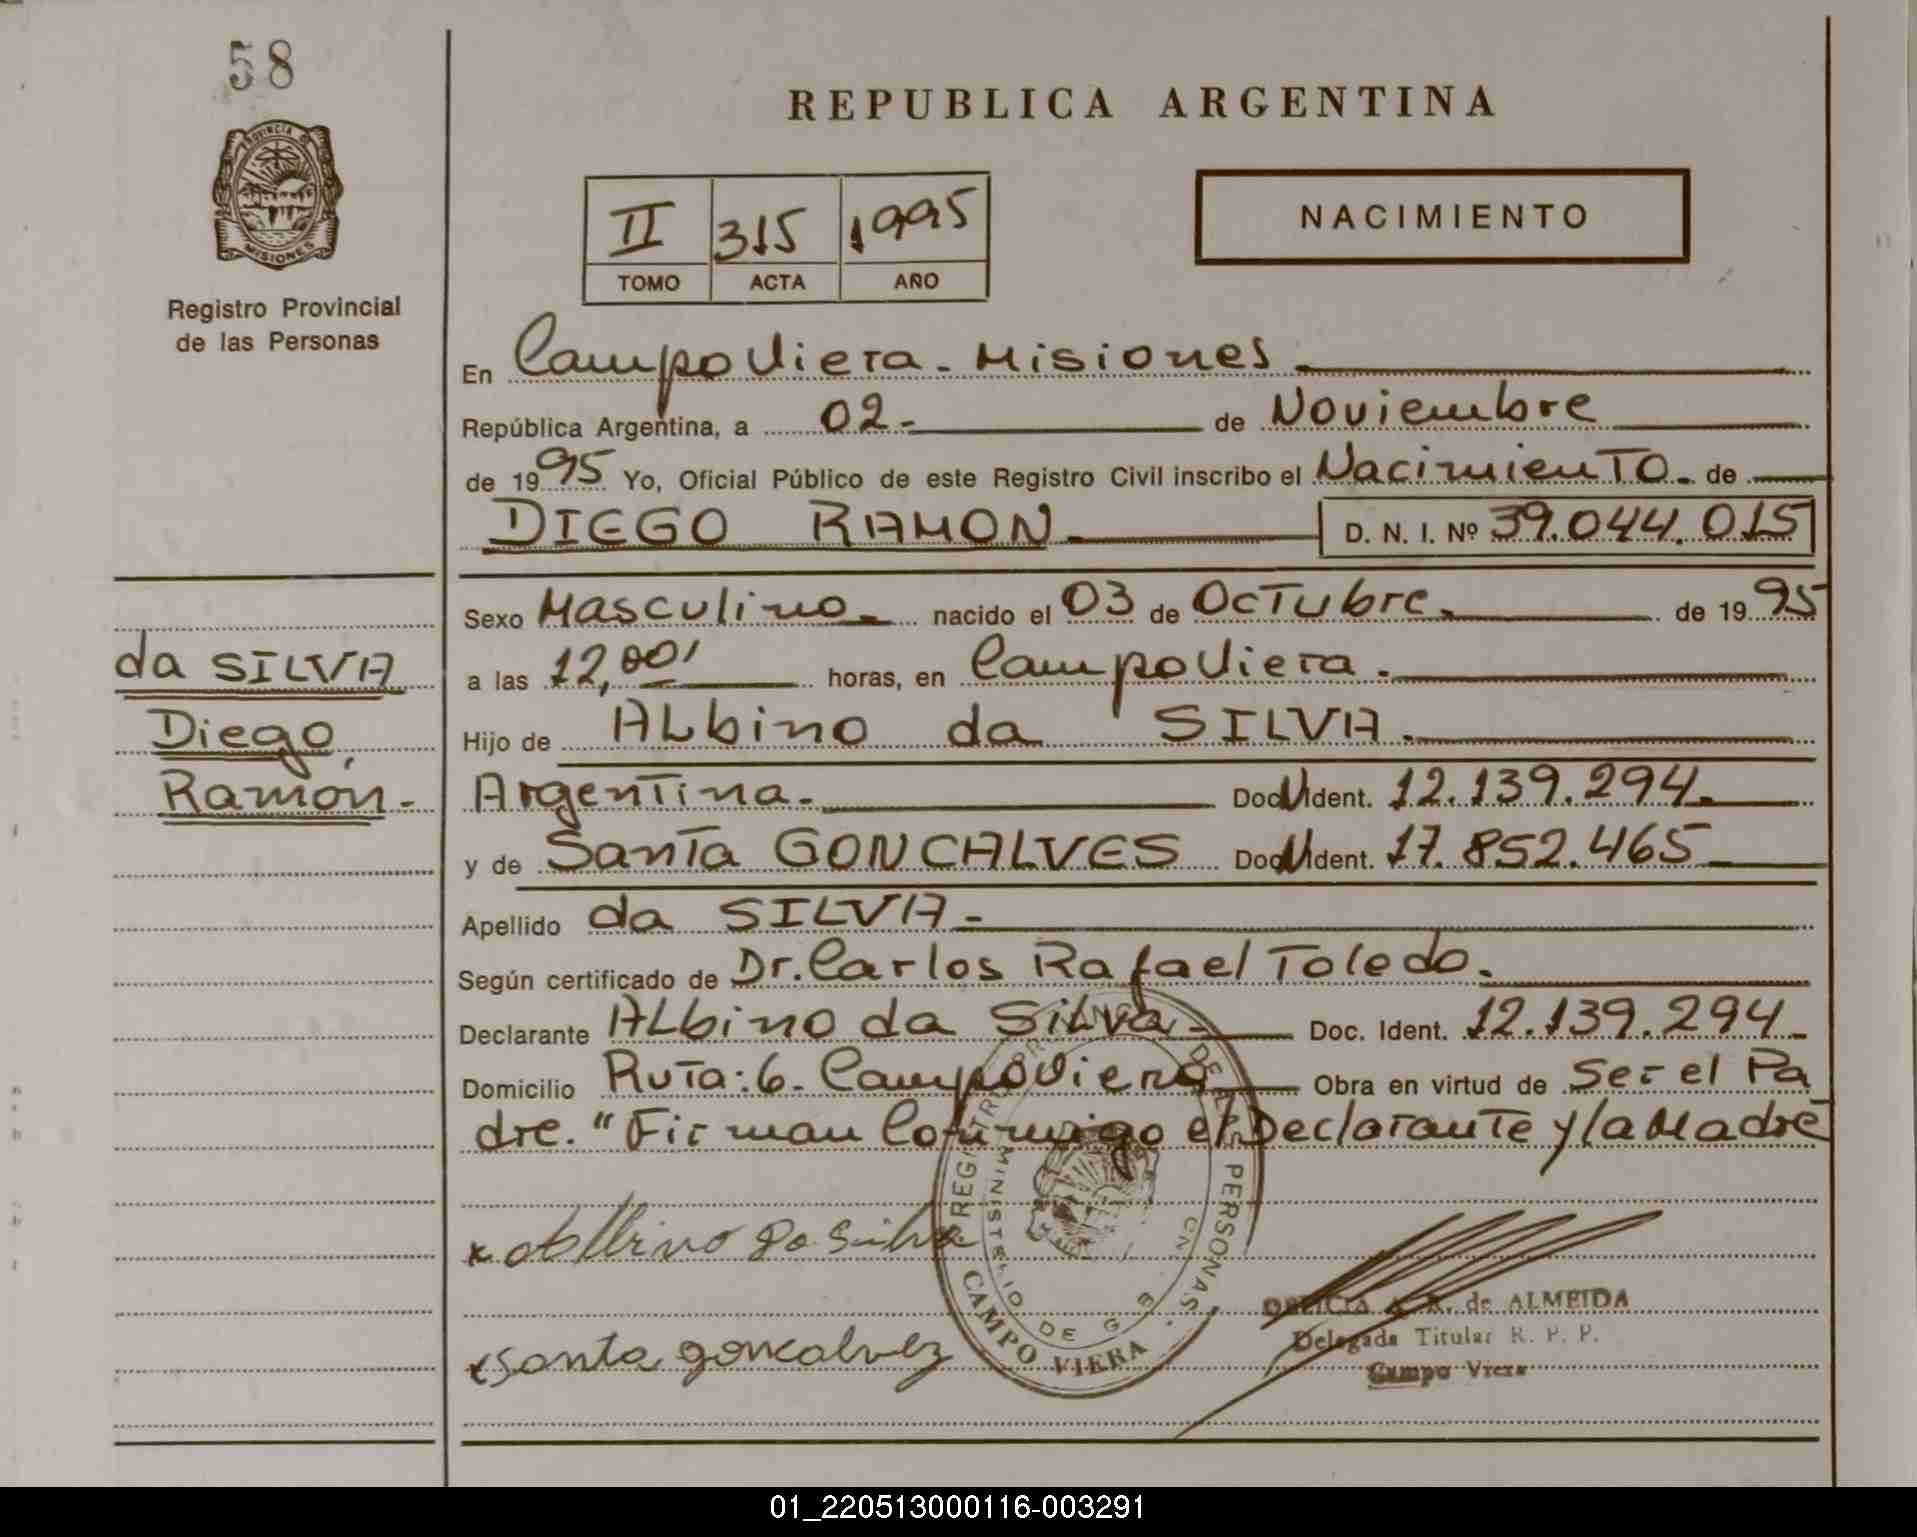 58
PROVINCIA
MISIONES
Registro Provincial
de las Personas
REPUBLICA ARGENTINA
II 315 1995
TOMO ACTA AÑO
NACIMIENTO
En Campo Viera - Misiones
República Argentina, a 02- de Noviembre
de 1995 Yo, Oficial Público de este Registro Civil inscribo el Nacimiento. de
DIEGO RAMON D. N. I. Nº 39.044.015
Sexo Masculino nacido el 03 de Octubre. de 1995
a las 12,00' horas, en Campo Viera.
Hijo de Albino da SILVA.
Argentina. Doc. Ident. 12.139.294.
y de Santa GONCALVES Doc. Ident. 17.852.465
Apellido da SILVA-
Según certificado de Dr. Carlos Rafael Toledo.
Declarante Albino da Silva- Doc. Ident. 12.139.294
Domicilio Ruta: 6. Campo Viera Obra en virtud de Ser el Pa
dre. "Firman Conmigo el Declarante y la Madre
da SILVA
Diego,
Ramón-
x Albino da Silva
x santa goncalvez
REGISTRO PROVINCIAL DE LAS PERSONAS
MINISTERIO DE G
CAMPO VIERA
A. R. de ALMEIDA
Delegada Titular R. P. P.
Campo Viera
01_220513000116-003291